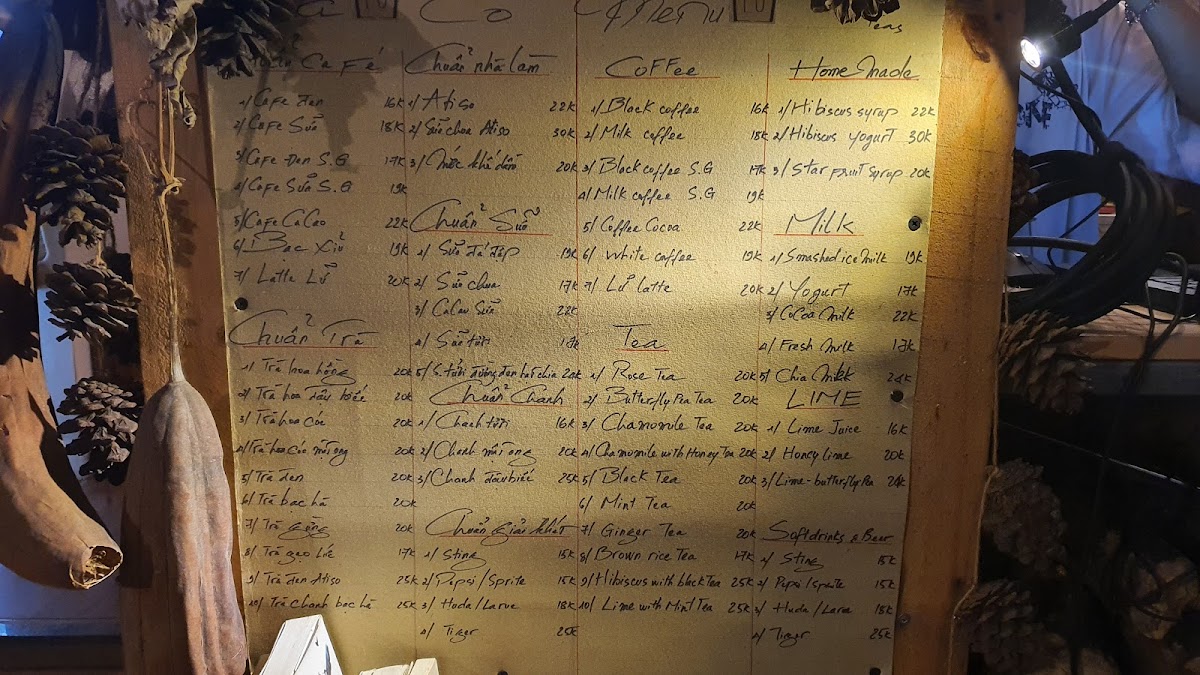 Co Menu
Teas
Ca Fé
1/ Cafe đen 16k
2/ Cafe Sữa 18k
3/ Cafe Đen S.G 17k
4/ Cafe Sữa S.G 19k
5/ Cafe CaCao 22k
6/ Bạc Xỉu 19k
7/ Latte Lử 20k
Chuẩn Trà
1/ Trà hoa hồng 20k
2/ Trà hoa đậu biếc 20k
3/ Trà hoa cúc 20k
4/ Trà hoa cúc mật ong 20k
5/ Trà đen 20k
6/ Trà bạc hà 20k
7/ Trà gừng 20k
8/ Trà gạo lức 17k
9/ Trà đen Atiso 25k
10/ Trà chanh bạc hà 25k
Chuẩn nhà làm
1/ Atiso 22k
2/ Sữa chua Atiso 30k
3/ Nước khế dầm 20k
Chuẩn Sữa
1/ Sữa đá đập 19k
2/ Sữa chua 17k
3/ CaCao Sữa 22k
4/ Sữa tươi 17k
5/ S. tươi đường đen hạt chia
Chuẩn Chanh
1/ Chanh tươi 16k
2/ Chanh mật ong 20k
3/ Chanh đậu biếc 25k
Chuẩn giải khát
1/ Sting 15k
2/ Pepsi/Sprite 15k
3/ Huda/Larue 18k
4/ Tiger 25k
Coffee
1/ Black coffee 16k
2/ Milk coffee 18k
3/ Black coffee S.G 17k
4/ Milk coffee S.G 19k
5/ Coffee Cocoa 22k
6/ White coffee 19k
7/ Lử latte 20k
Tea
1/ Rose Tea 20k
2/ Butterfly Pea Tea 20k
3/ Chamomile Tea 20k
4/ Chamomile with Honey Tea 20k
5/ Black Tea 20k
6/ Mint Tea 20k
7/ Ginger Tea 20k
8/ Brown rice Tea 17k
9/ Hibiscus with black tea 25k
10/ Lime with Mint Tea 25k
Home Made
1/ Hibiscus syrup 22k
2/ Hibiscus yogurt 30k
3/ Star fruit syrup 20k
Milk
1/ Smashed ice milk 19k
2/ Yogurt 17k
3/ Cocoa Milk 22k
4/ Fresh Milk 17k
5/ Chia Milk
LIME
1/ Lime Juice 16k
2/ Honey lime 20k
3/ Lime-butterfly Pea
Softdrinks & Beer
1/ Sting 15k
2/ Pepsi/Sprite 15k
3/ Huda/Larue 18k
4/ Tiger 25k